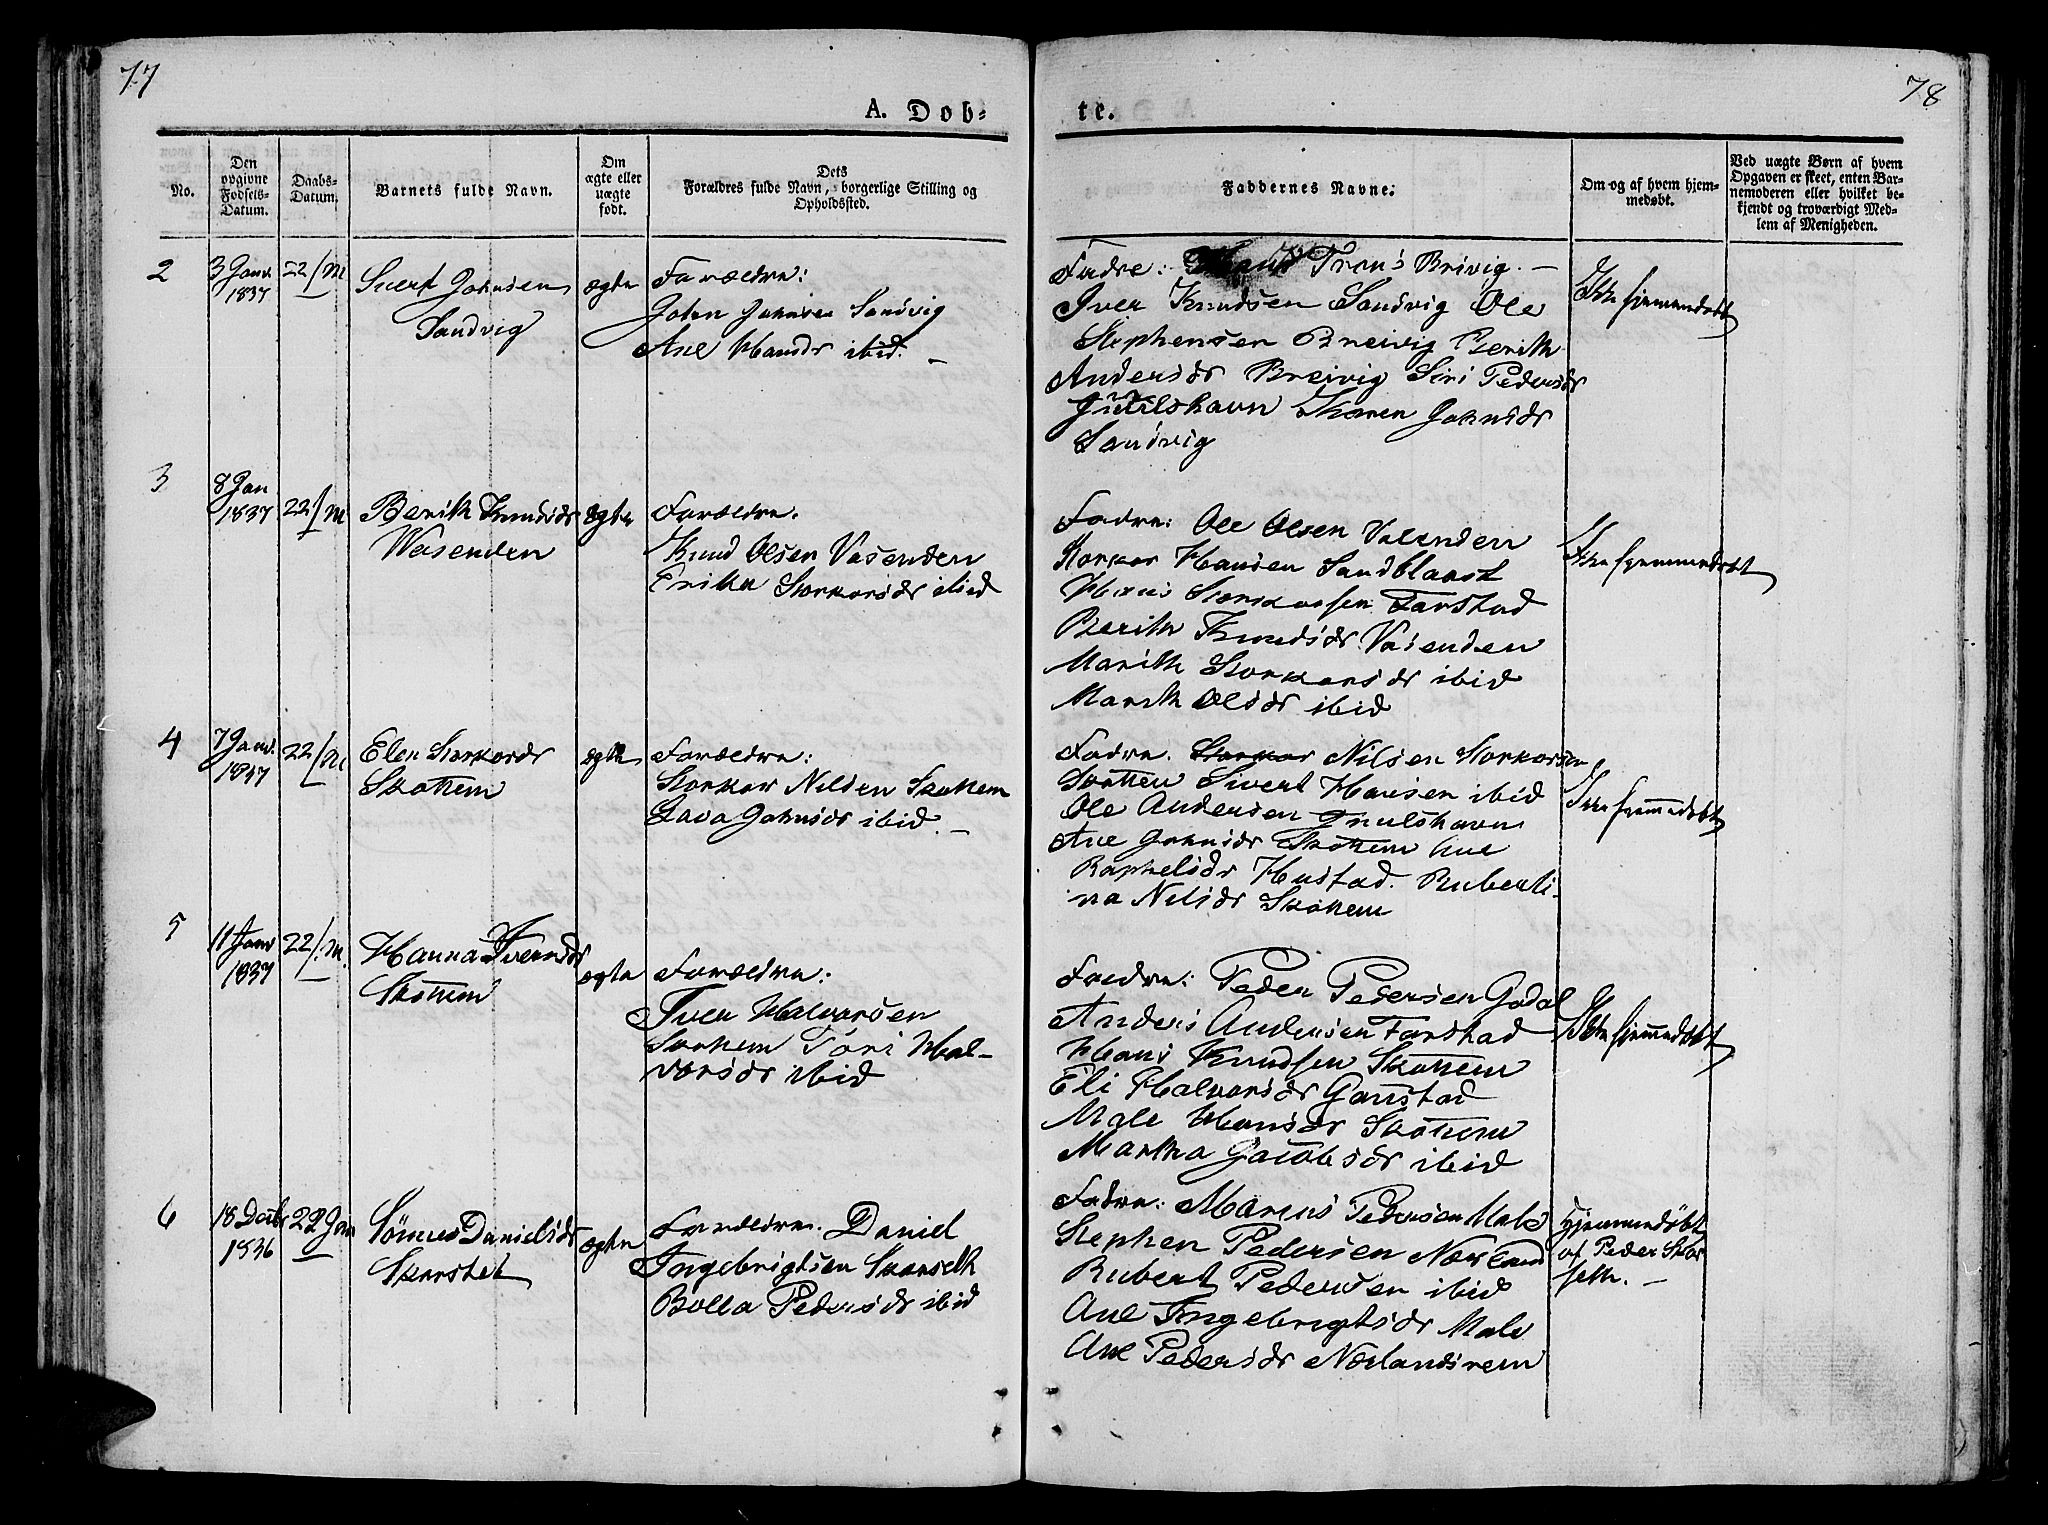 77
78
A. Dob-
te.
No.
Den opgivne Fødsels-Datum.
Daabs-Datum.
Barnets fulde Navn.
Om ægte eller uægte født.
Dets Forældres fulde Navn, borgerlige Stilling og Opholdssted.
Faddernes Navne.
Om og af hvem hjem-medøbt.
Ved uægte Børn af hvem
Opgaven er skeet, enten Bar-
nemoderen eller hvilket be-
kjendt og troværdigt Med-
lem af Menigheden.
2
3 Janr
1837
22/M
Sivert Johnsen
Sandvig
ægte
Forældre:
John Johnsen Sandvig
Ane Hansdr ibid. -
Fadre: Brivig. -
Iver Knudsen Sandvig Ole
Stephensen Breivig Berith
Andersdr Breivig Siri Pedersdr
Julshavn Karen Johnsdr
Sandvig
Ikke hjemmedøbt
3
8 Jan
1837
22/M
Berith Knudsdr
Wasenden
ægte
Forældre.
Knud Olsen Vasenden
Erika Storkorsdr ibid
Fadre: Ole Olsen Vasenden
Storkor Hansen Sandblaast
Hans Storkorsen Farstad
Berith Knudsdr Vasenden
Marith Storkorsdr ibid
Marith Olsdr ibid
Ikke hjemmedøbt
4
7 Janr.
1837
22/M
Elen Storkorsdr
Skottem
ægte
Forældre:
Storkor Nilsen Skottem
Lava Johnsdr ibid. -
Fadre. Storkor Nilsen Storkorsen
Skottem Sivert Hansen ibid
Ole Andersen Julshavn
Ane Johnsdr Skottem Ane
Raphelsdr Hustad. Ruberti-
na Nilsdr Skottem
Ikke hjemmedøbt
5
11 Janr
1837
22/M.
Hanna Iversdr
Skottem
ægte
Forældre:
Iver Halvorsen
Skottem Tori Hal-
vorsdr ibid
Fadre: Peder Pedersen Godal
Anders Andersen Farstad
Hans Knudsen Skottem
Eli Halvorsdr Gaustad
Male Hansdr Skottem
Martha Jacobsdr ibid
Ikke hjemmedøbt
6
18 Decbr
1836
22 Jan
Danielsdr
Skarset
ægte
Forældre. Daniel
Ingebrigtsen Skarseth
Bolla Pedersdr ibid
Fadre: Marcus Pedersen Male
Stephen Pedersen Norland
Rubert Pedersen ibid
Ane Ingebrigtsdr Male
Ane Pedersdr Norlandsvem
Hjemmedøbt
af Peder Skar
seth. -